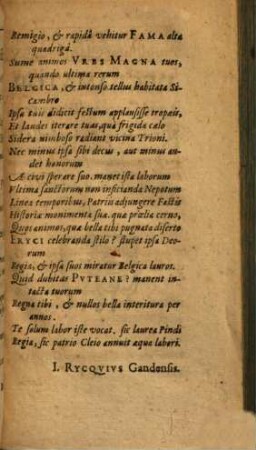 Remigio, & rapidâ vehitur FAMA alta
quadrigâ.
Sume animos VRBS MAGNA tuos,
quando ultima rerum
BELGICA, & intenso tellus habitata Si-
cambro
Ipsa tuis didicit festum applausisse tropæis,
Et laudes iterare tuas, quà frigida cælo
Sidera nimboso radiant vicina Trioni.
Nec minus ipsa sibi decus, aut minus au-
det honorum
Æ civi sperare suo. manet ista laborum
Vltima suffectorum non inficianda Nepotum
Linea temporibus, Patriis adjungere Fastis
Historiæ monimenta suæ. quæ prælia cerno,
Quos animos, quæ bella tibi pugnata diserto
ERYCI celebranda stilo? stupet ipsa Deo-
rum
Regia, & ipsa suos miratur Belgica lauros.
Quid dubitas PVTEANE? manent in-
tacta tuorum
Regna tibi, & nullos bella interitura per
annos.
Te solum labor iste vocat. sic laurea Pindi
Regia, sic patrio Cleio annuit æqua labori.
I. RYCQVIVS Gandensis.